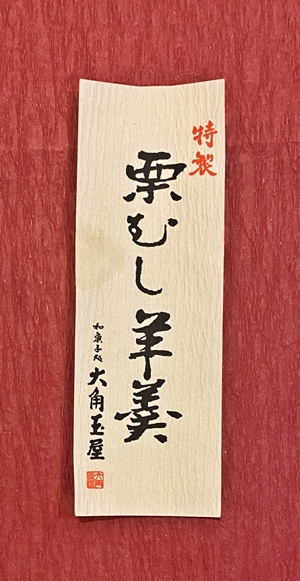 特製
栗むし羊羹
和菓子処
大角玉屋